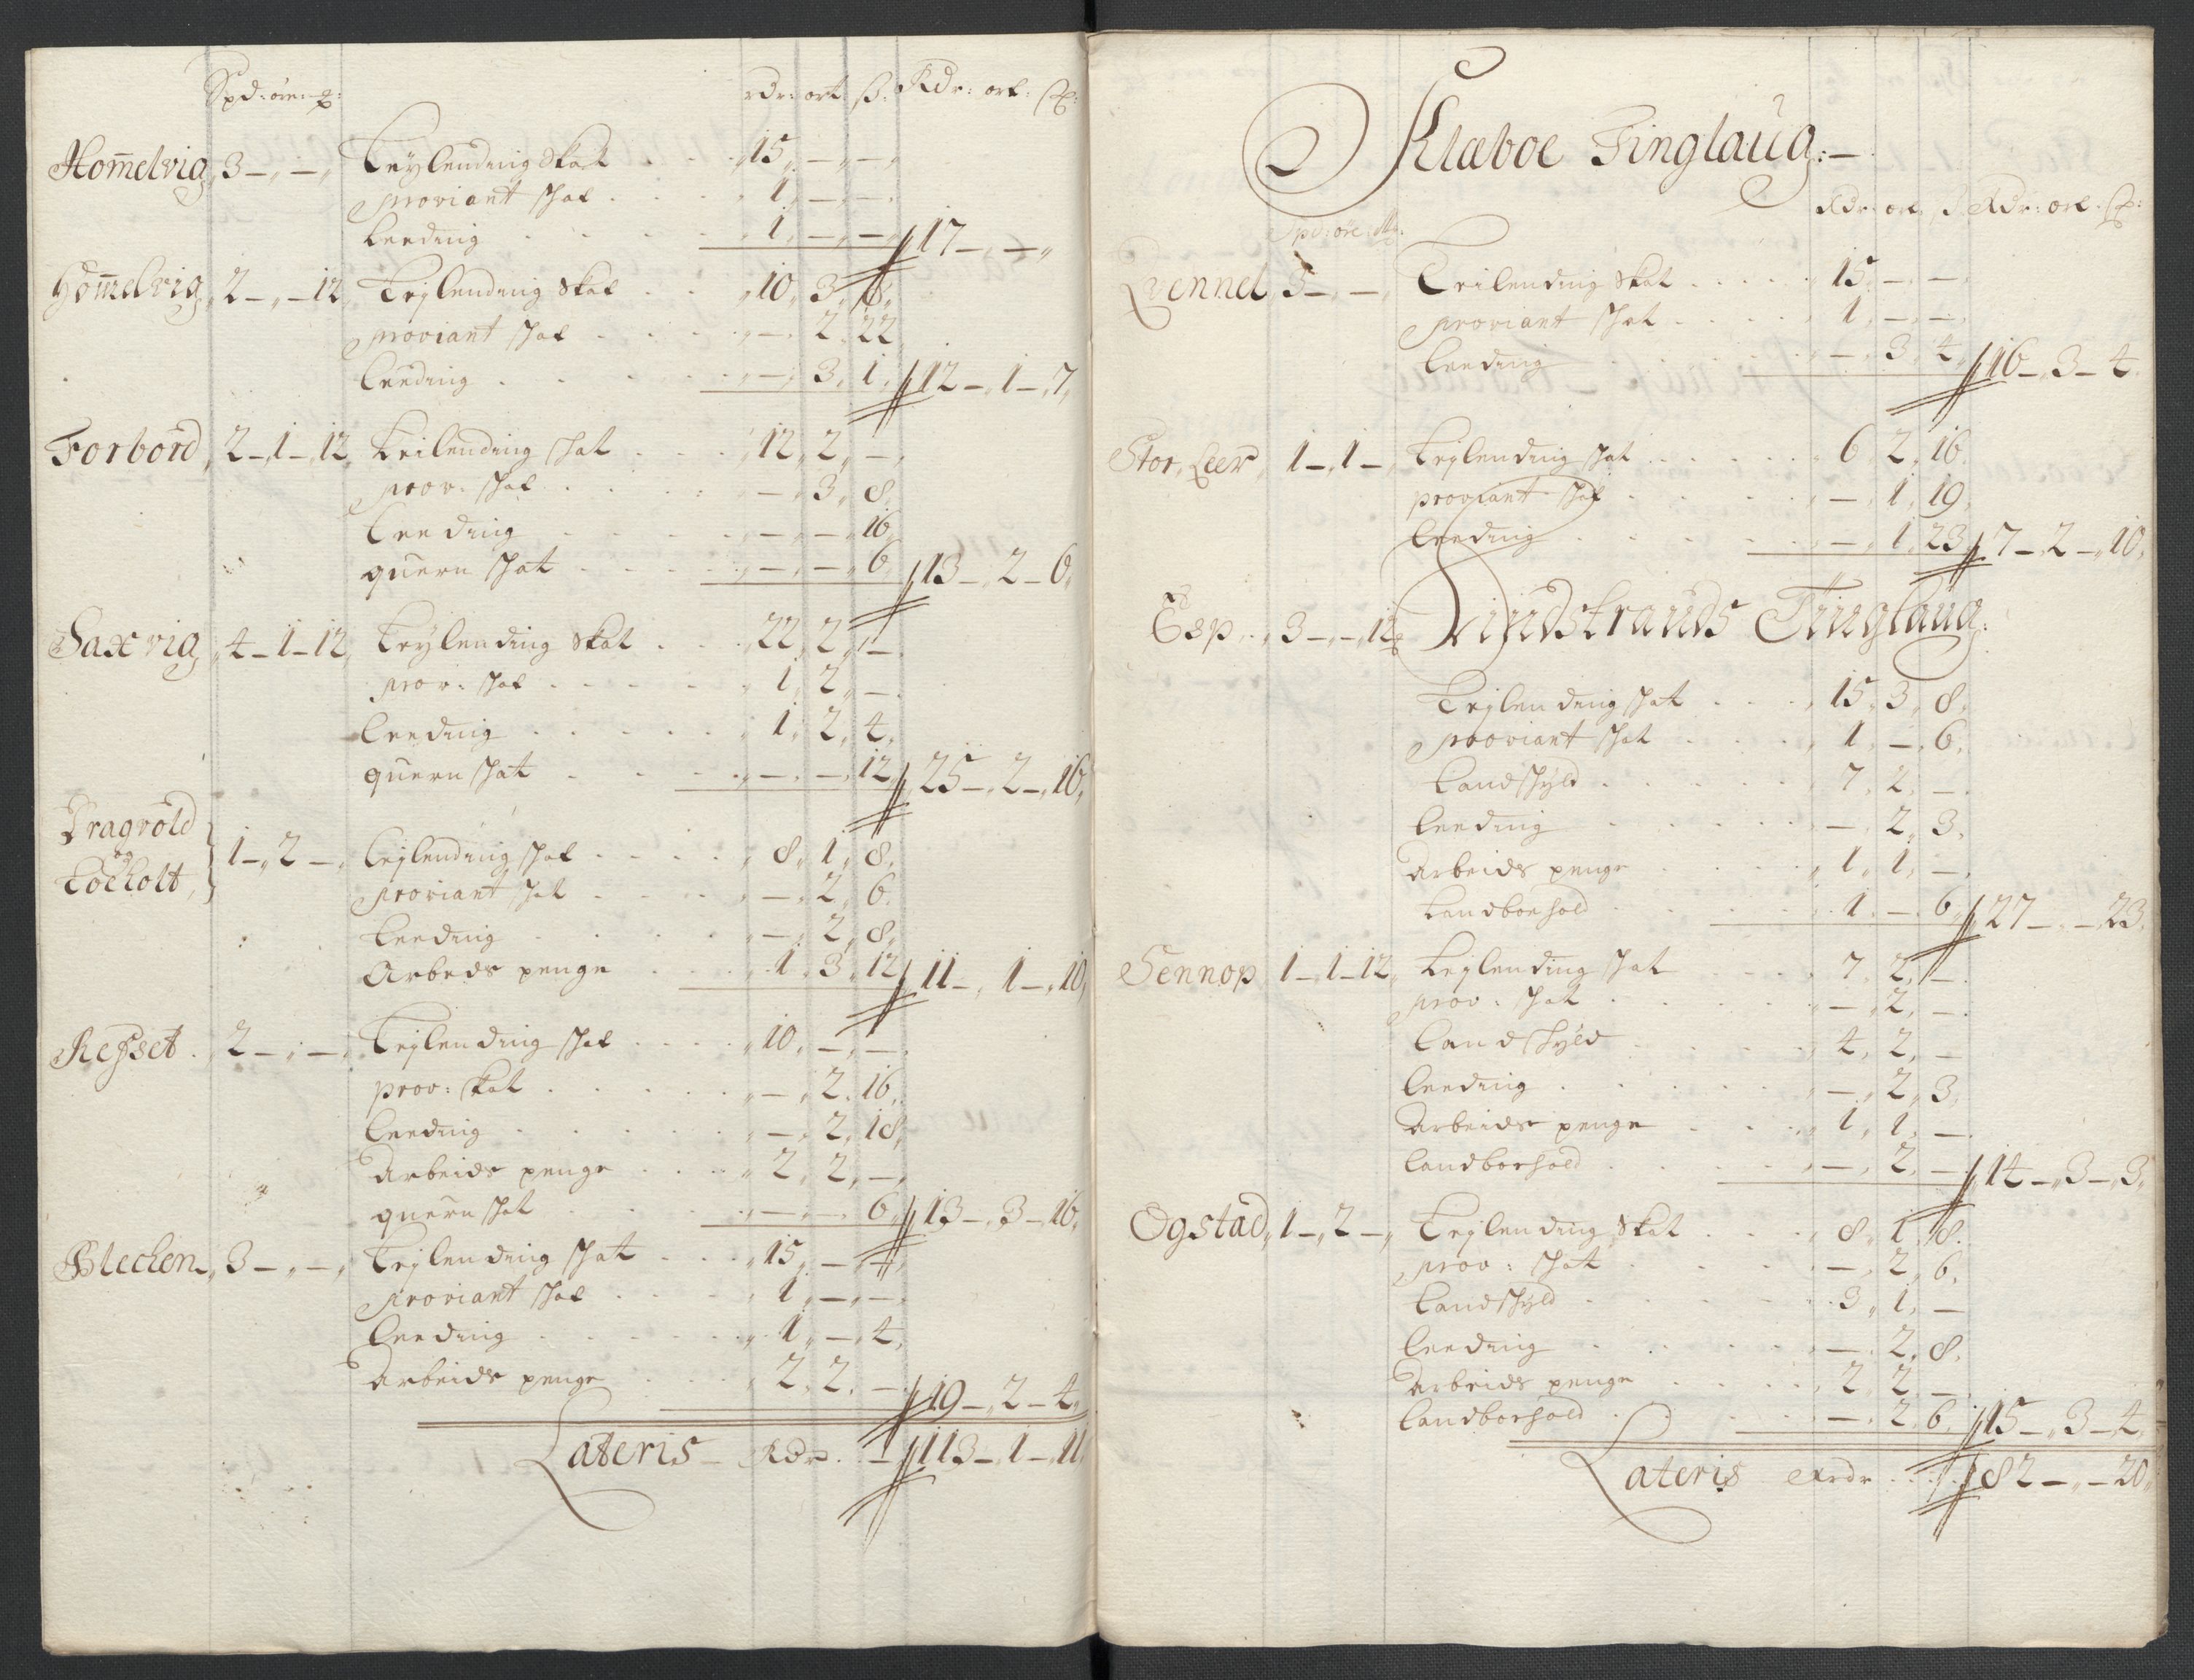 Spd: øre: ₰: rdr: ort. ß: Rdr: ort: ß:
Hom̄elvig 3 – „ – „ Leÿlending Skat . . . 15 „ – „ – „
proviant skat . . . 1 „ – „ – „
Leeding . . . 1 „ – „ – „ 17 – „ – „
Hom̄elvig 2 – „ – 12 Leÿlending Skat . . 10 „ 3 „ 8 „
proviant skat . . . – „ 2 „ 22
Leeding . . . – „ 3 „ 1 „ 12 – „ 1 – „ 7 „
Forbord „ 2 – „ 1 – „ 12 Leilending skat . . . 12 „ 2 „ – „
prov: skat . . . – „ 3 „ 8 „
Leeding . . . – „ – „ 16 „
quern skat . . . – „ – „ 6 „ 13 – „ 2 – 6 „
Saxvig „ 4 – 1 – 12 „ Leÿlending Skat . . . 22 „ 2 „ –
prov: skat . . . 1 „ 2 „ –
Leeding . . . 1 „ 2 „ 4 „
quern skat . . . – „ – „ 12 „ 25 – „ 2 – „ 16 „
Dragvold
og 1 – „ 2 – „ Leÿlending skat . . . 8 „ 1 „ 8 „
Locholt „ proviant skat . . . – „ 2 „ 6 „
Leeding . . . – „ 2 „ 8 „
Arbeds penge . . . 1 „ 3 „ 12 „ 11 – „ 1 – „ 10 „
Reßset . 2 – „ – „ Leÿlending skat . . . 10 „ – „ –
prov: skat . . . – „ 2 „ 16 „
Leeding . . . – „ 2 „ 18 „
Arbeids penge . . . 2 „ 2 „ – „
quern skat . . . – „ – „ 6 „ 13 – „ 3 – „ 16 „
Blecken „ 3 – „ – „ Leÿlending skat . . . 15 „ – „ – „
proviant skat . . . 1 „ – „ – „
Leeding . . . 1 „ – „ 4 „
Arbeids penge . . . 2 „ 2 „ – „ 19 – „ 2 – 4 „
Lateris – Rdr. – 113 – „ 1 – „ 11
Klæboe Tinglaug: –
Rdr: ort. ß Rdr: ort: ß:
Spd: øre
Qvennel 3 – „ – „ Leilending Skat . . . 15 „ – „ –
proviant skat . . . 1 „ – „ – „
Leeding . . . – „ 3 „ 4 „ 16 – „ 3 – 4
Stor, Leer „ 1 – „ 1 – „ Leÿlending skat . . . 6 „ 2 „ 16
proviant skat . . . – „ 1 „ 19
Leeding . . . – „ 1 „ 23 „ 7 – „ 2 – „ 10 „
Esp „ 3 – „ – „ 12 Vijdstrands Tinglaug:
Leÿlending skat . . . 15 „ 3 „ 8 „
proviant skat . . . 1 „ – „ 6 „
Landskÿld . . . 7 „ 2 „ –
Leeding . . . – „ 2 „ 3 „
Arbeids penge . . . 1 „ 1 „ –
Landboehold . . . 1 „ – „ 6 „ 27 – „ – „ 23
Sennop 1 – „ 1 – 12 „ Leÿlending skat . . . 7 „ 2 „ –
prov: skat . . . – „ 2 „ –
Landskÿld . . . 4 „ 2 „ –
Leeding . . . – „ 2 „ 3 „
Arbeids penge . . . 1 „ 1 „ –
Landboehold . . . – „ 2 „ – 14 – „ 3 – „ 3 „
Ogstad „ 1 – „ 2 – „ Leÿlending Skat . . . 8 „ 1 „ 8 „
prov: skat . . . – „ 2 „ 6 „
Landskÿld . . . 3 „ 1 „ –
Leeding . . . – „ 2 „ 8 „
Arbeids penge . . . 2 „ 2 „ –
Landboehold . . . – „ 2 „ 6 „ 15 – „ 3 – 4 „
Lateris Rdr . . . 82 – „ – 20 „